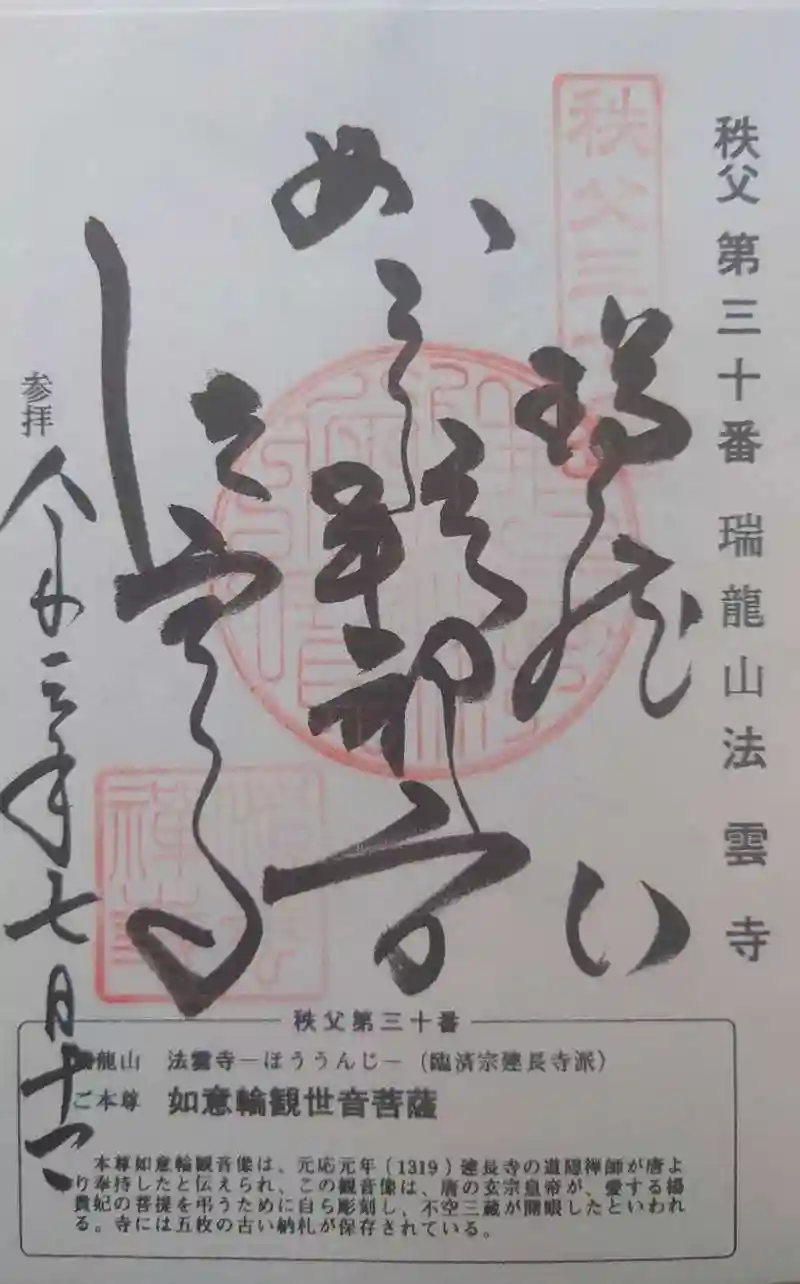 秩父 第三十番 瑞龍山法雲寺
秩父三
瑞龍山
法雲寺
参拝
令和三年七月十二
秩父第三十番
龍山 法雲寺－ほううんじ－（臨済宗建長寺派）
ご本尊 如意輪観世音菩薩
本尊如意輪観音像は、元応元年(1319)建長寺の道隠禅師が唐よ
り奉持したと伝えられ、この観音像は、唐の玄宗皇帝が、愛する楊
貴妃の菩提を弔うために自ら彫刻し、不空三蔵が開眼したといわれ
る。寺には五枚の古い納札が保存されている。